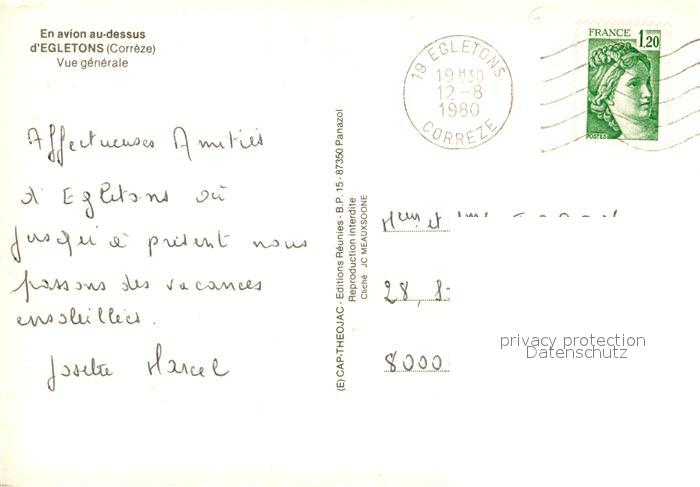 En avion au-dessus
d'EGLETONS (Corrèze)
Vue générale
19 EGLETONS
19 H30
12-8
1980
CORREZE
FRANCE
1,20
POSTES
Affectueuses Amitiés
d'Egletons où
jusqu'à présent nous
passons des vacances
ensoleillées.
Josette Marcel
(E) CAP-THEOJAC - Editions Réunies - B.P. 15 - 87350 Panazol
Reproduction interdite
Cliché JC MEAUXSOONE
et
28,
8000
privacy protection
Datenschutz